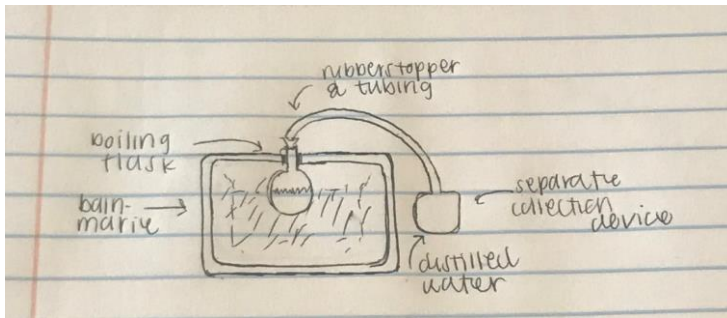 rubberstopper
& tubing
boiling
flask
bain-
marie
separate
collection
device
distilled
water